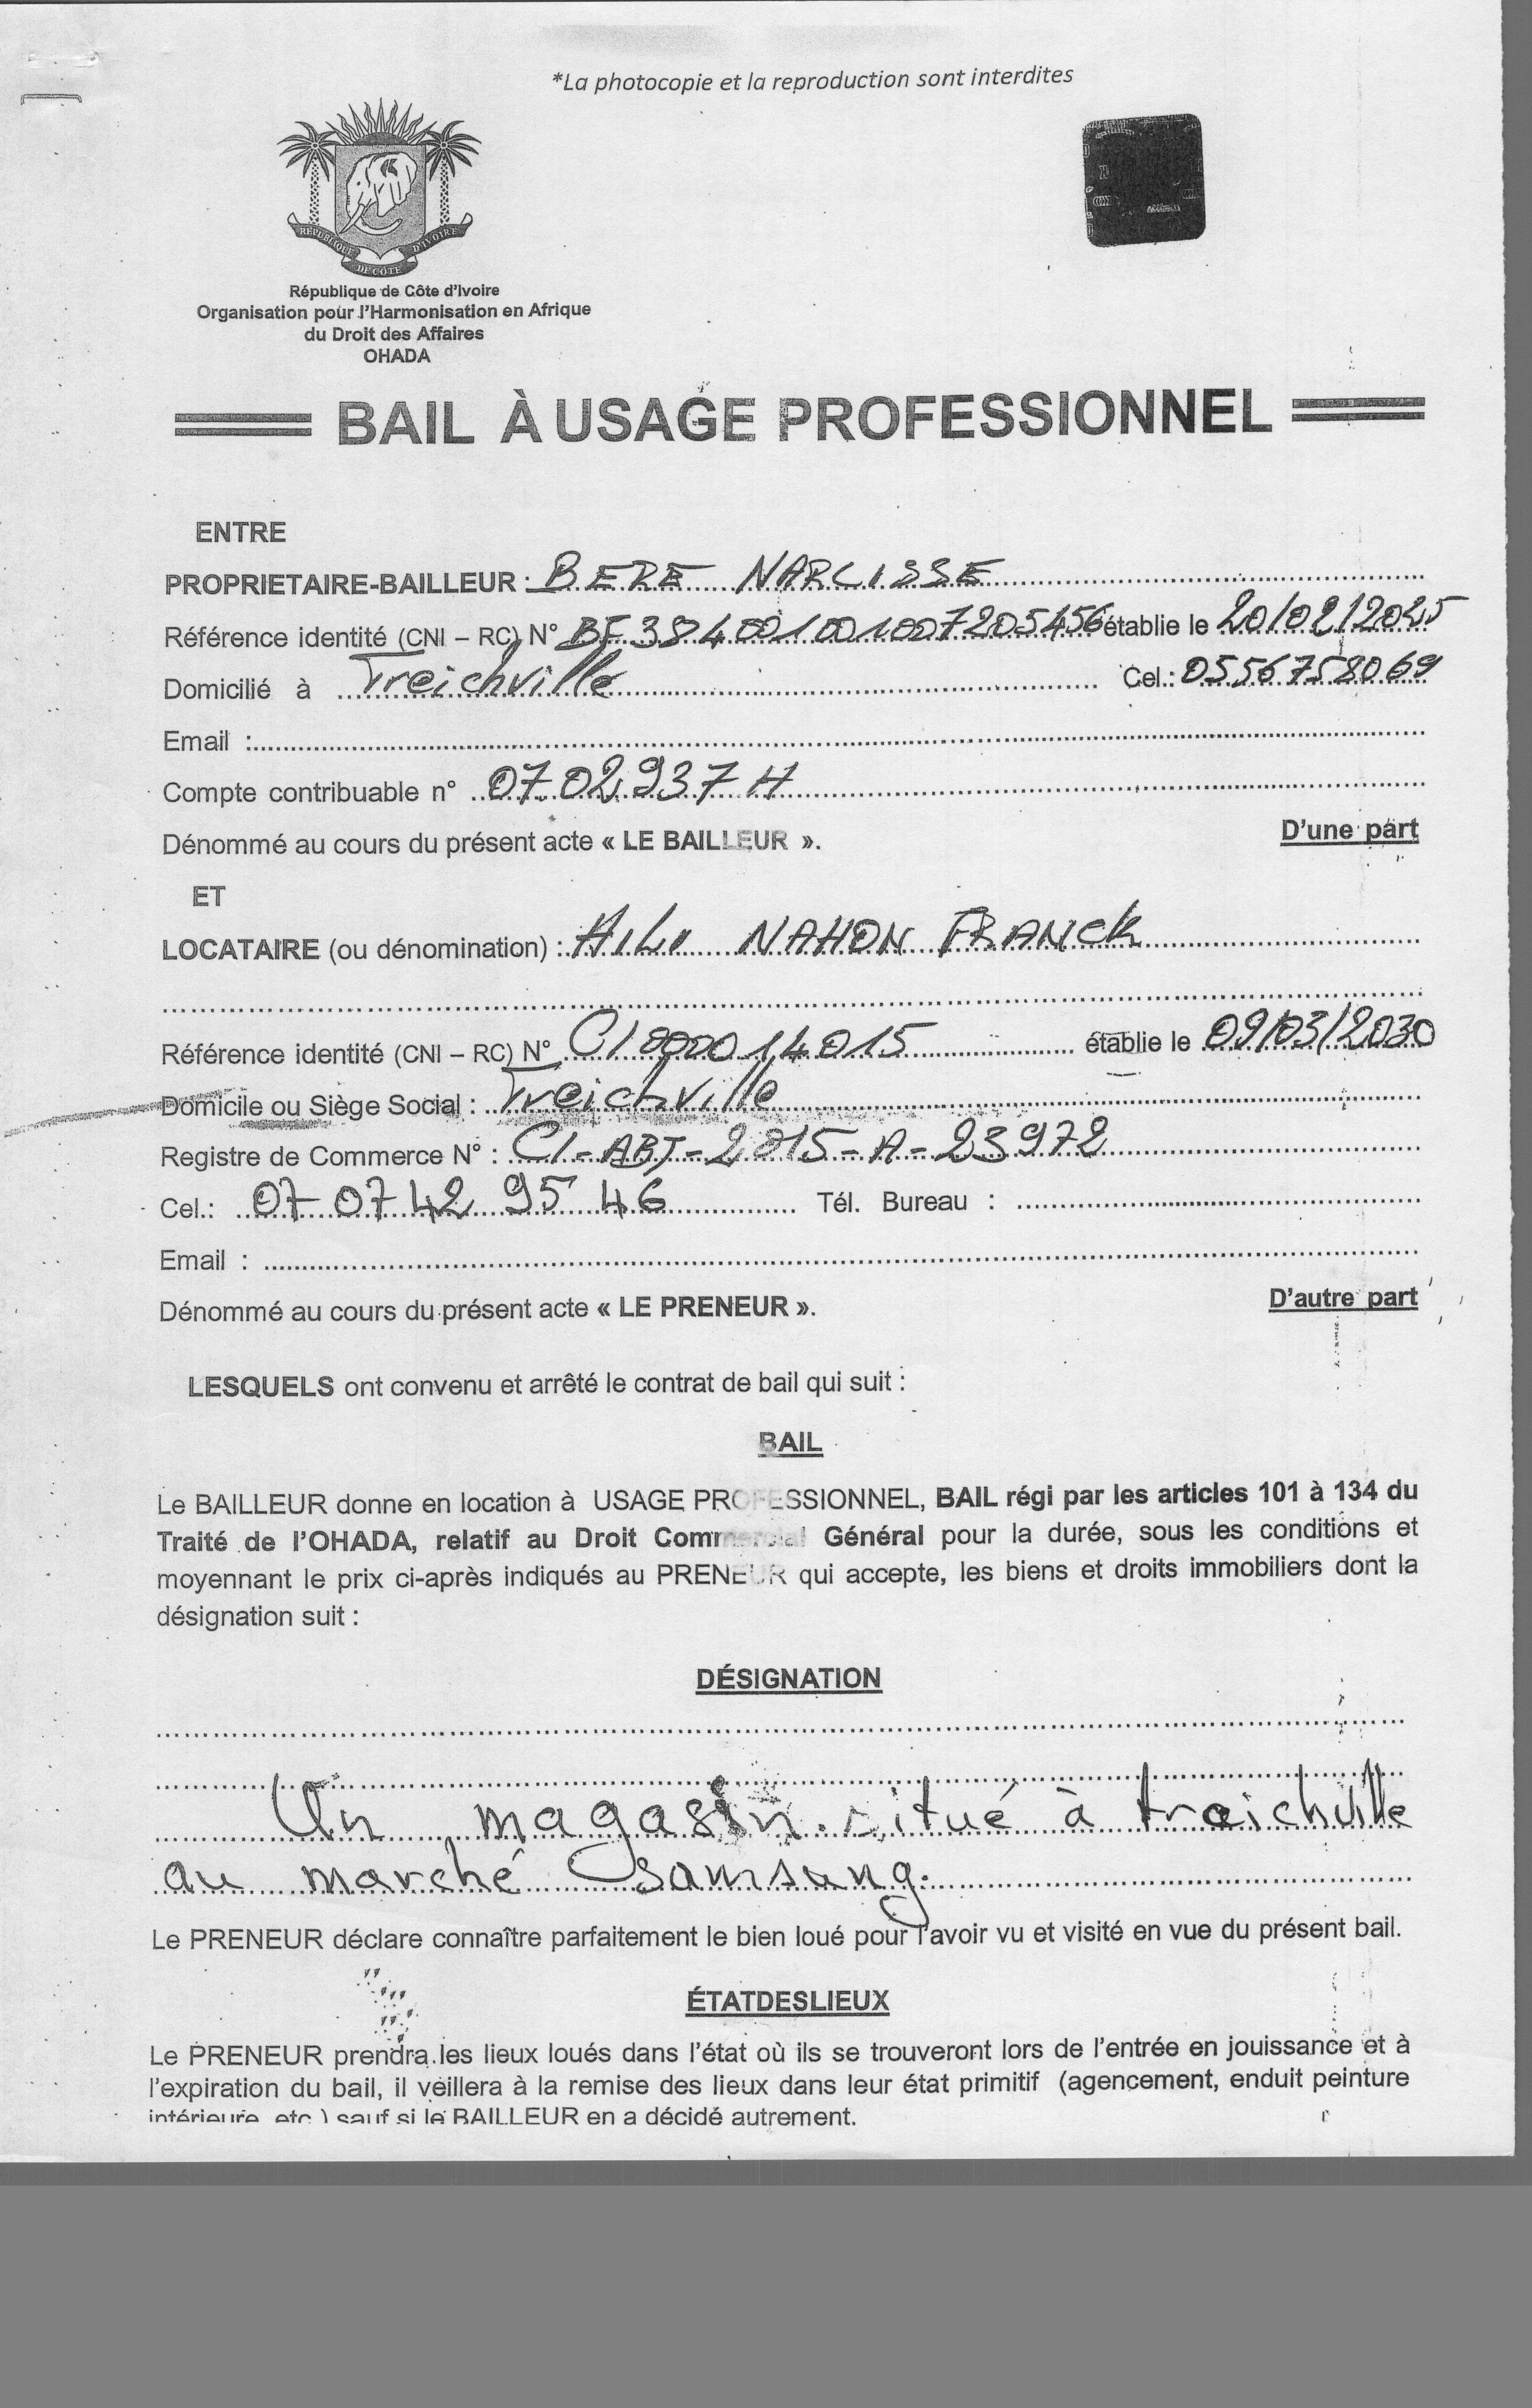 *La photocopie et la reproduction sont interdites
RÉPUBLIQUE DE CÔTE D'IVOIRE
République de Côte d'Ivoire
Organisation pour l'Harmonisation en Afrique
du Droit des Affaires
OHADA
BAIL À USAGE PROFESSIONNEL
ENTRE
PROPRIETAIRE-BAILLEUR : BERE NARCISSE
Référence identité (CNI – RC) N° BF384001001007205456 établie le 20/02/2025
Domicilié à Treichville Cel.: 0556758069
Email :
Compte contribuable n° 0702937 H
Dénommé au cours du présent acte « LE BAILLEUR ». D'une part
ET
LOCATAIRE (ou dénomination) : NAHON FRANCK
Référence identité (CNI – RC) N° CI000014015 établie le 09/03/2030
Domicile ou Siège Social : Treichville
Registre de Commerce N° : CI-ABJ-2015-A-23972
Cel.: 07 07 42 95 46 Tél. Bureau :
Email :
Dénommé au cours du présent acte « LE PRENEUR ». D'autre part
LESQUELS ont convenu et arrêté le contrat de bail qui suit :
BAIL
Le BAILLEUR donne en location à USAGE PROFESSIONNEL, BAIL régi par les articles 101 à 134 du
Traité de l'OHADA, relatif au Droit Commercial Général pour la durée, sous les conditions et
moyennant le prix ci-après indiqués au PRENEUR qui accepte, les biens et droits immobiliers dont la
désignation suit :
DÉSIGNATION
Un magasin situé à treichville
au marché Samsung.
Le PRENEUR déclare connaître parfaitement le bien loué pour l'avoir vu et visité en vue du présent bail.
ÉTATDESLIEUX
Le PRENEUR prendra les lieux loués dans l'état où ils se trouveront lors de l'entrée en jouissance et à
l'expiration du bail, il veillera à la remise des lieux dans leur état primitif (agencement, enduit peinture
intérieure, etc.) sauf si le BAILLEUR en a décidé autrement.